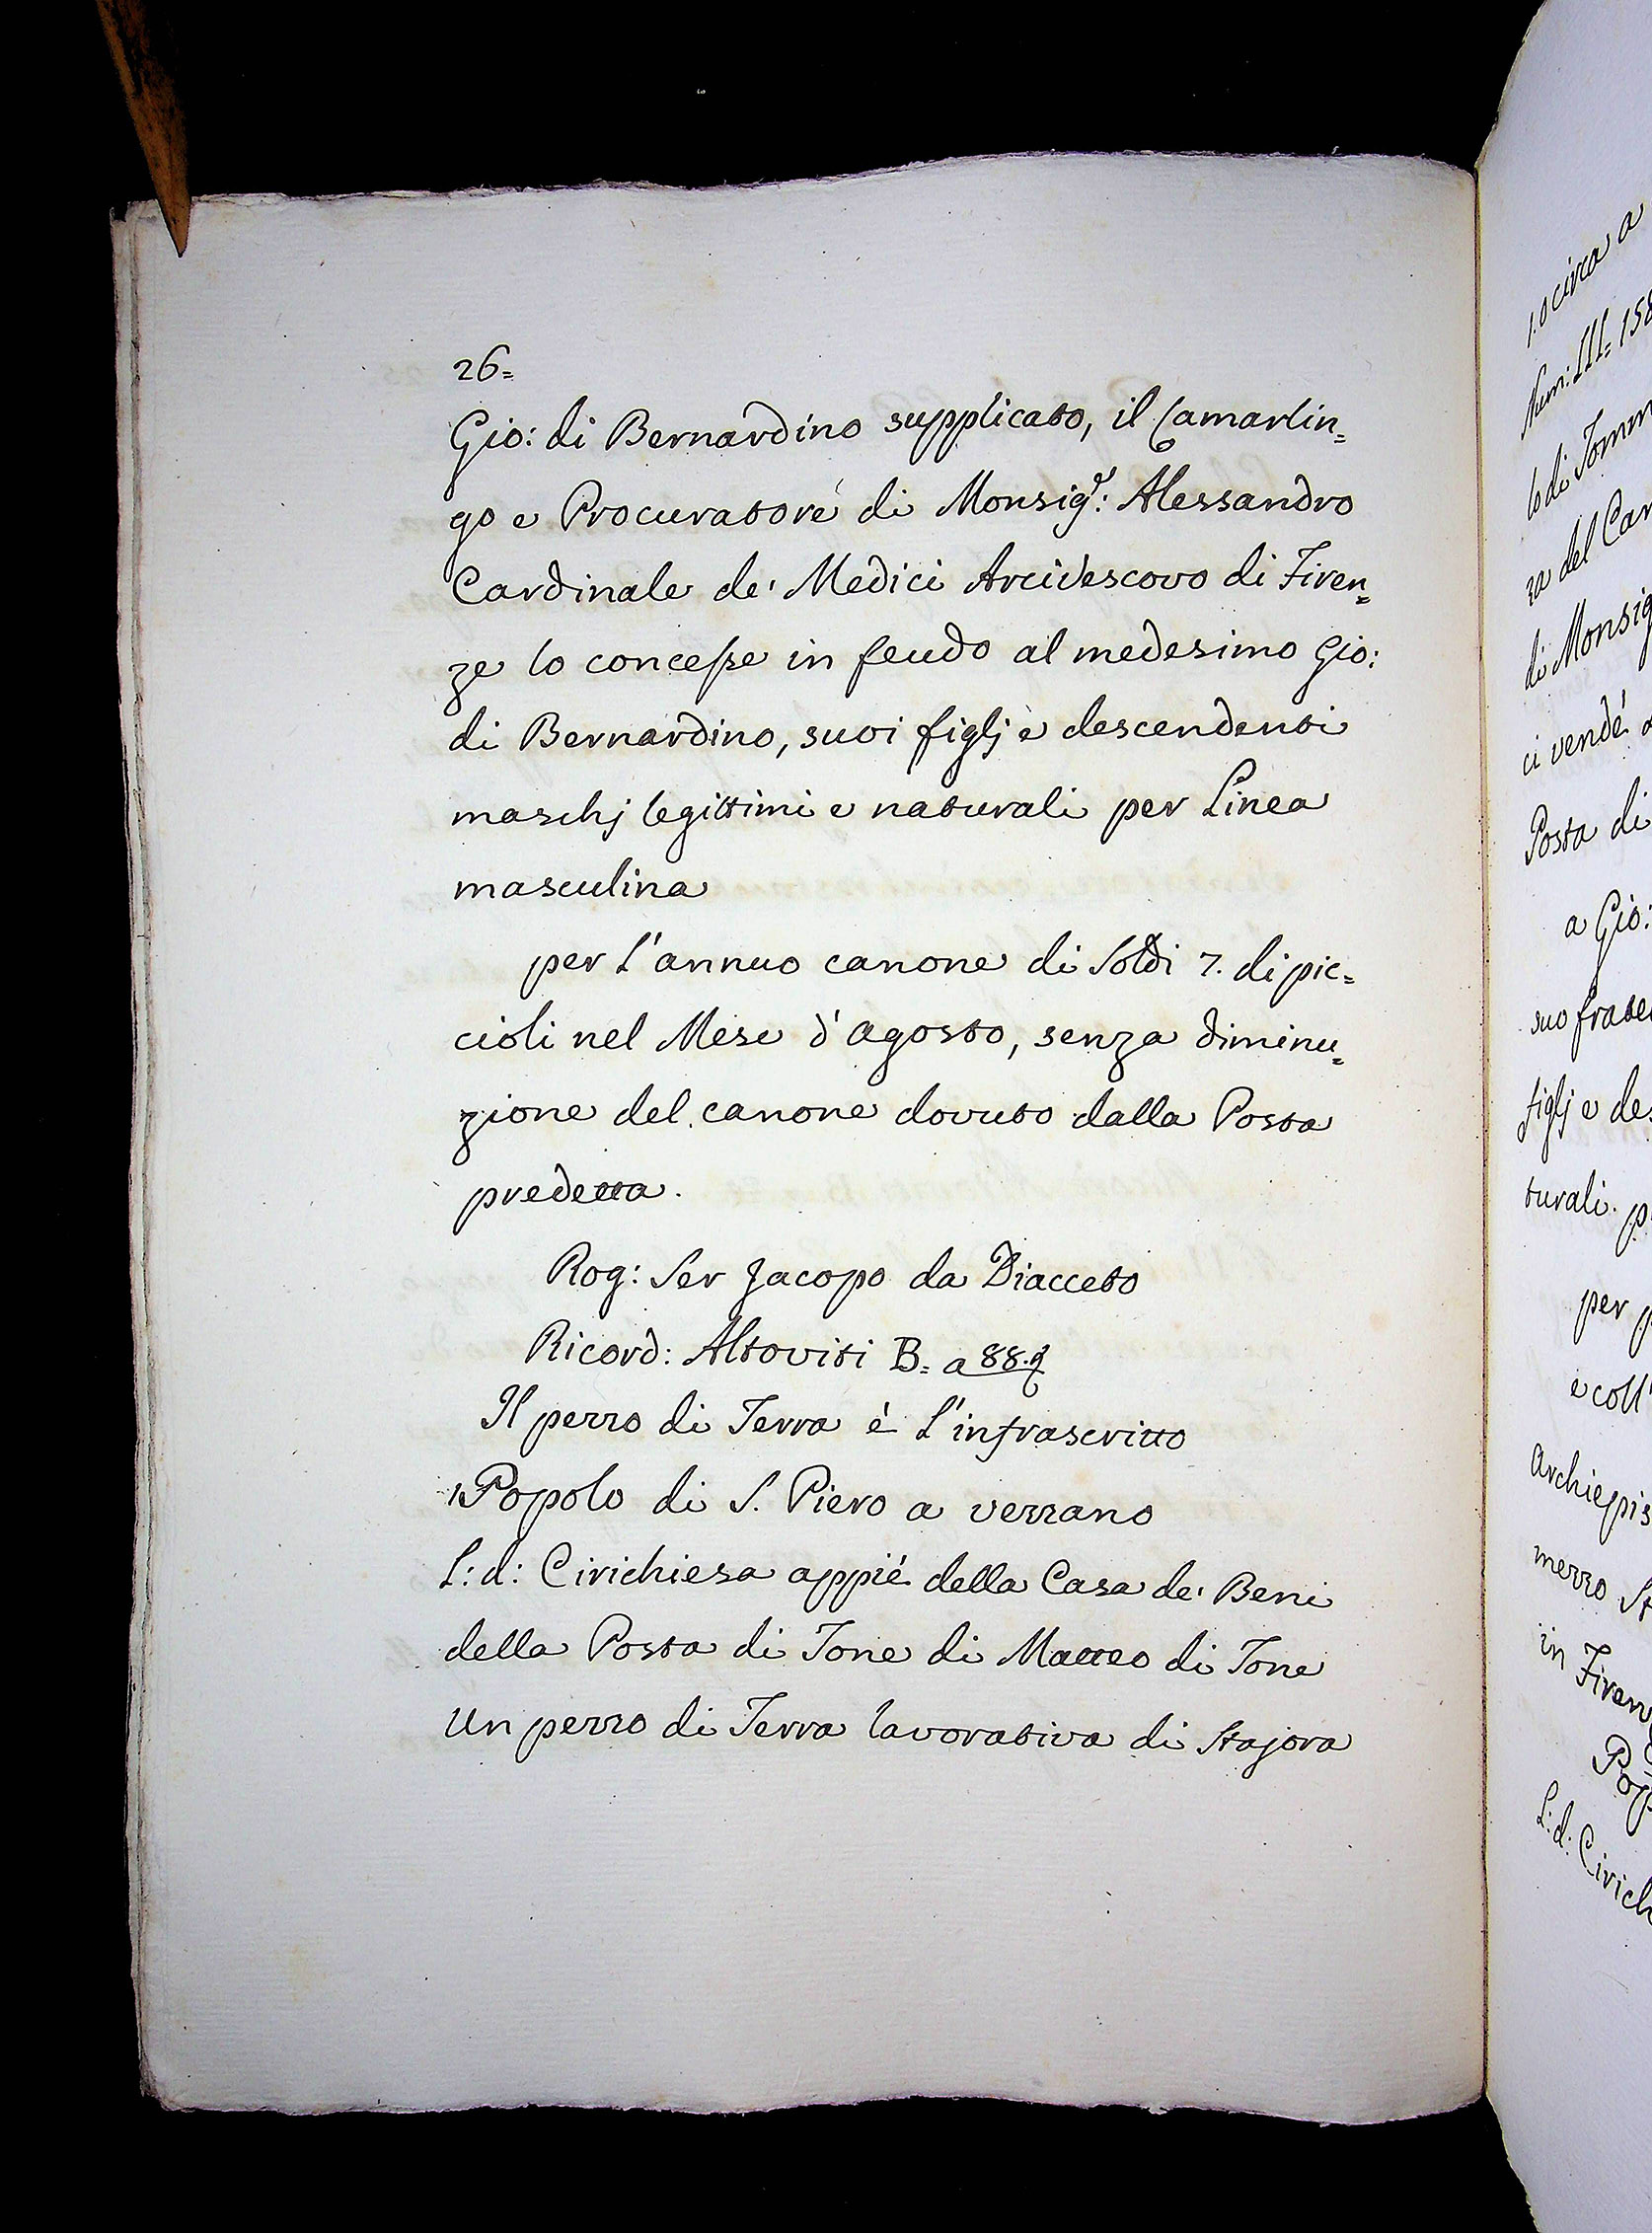 26=
Gio: di Bernardino supplicato, il Camarlin=
go e Procuratore di Monsig.r: Alessandro
Cardinale de' Medici Arcivescovo di Firen=
ze lo concesse in feudo al medesimo Gio:
di Bernardino, suoi figlj e descendenti
maschj legittimi e naturali per Linea
masculina
per l'annuo canone di Soldi 7. di pic=
cioli nel Mese d'agosto, senza diminu=
zione del canone dovuto dalla Posta
predetta.
Rog: Ser Jacopo da Diacceto
Ricord: Altoviti B= a 88.
Il pezzo di Terra è l'infrascritto
Popolo di S. Piero a vezzano
L: d: Cirichiesa appié della Casa de' Beni
della Posta di Tone di Matteo di Tone
Un pezzo di Terra lavorativa di Stajora
circa a
Num: III= 158
lo di Tomm
za del Car
di Monsig
ci vendé
Posta di
a Gio:
suo frate
figlj e des
turali. p
per p
e coll'
Archiepis
mezzo St
in Firen
Pop
L: d: Cirich